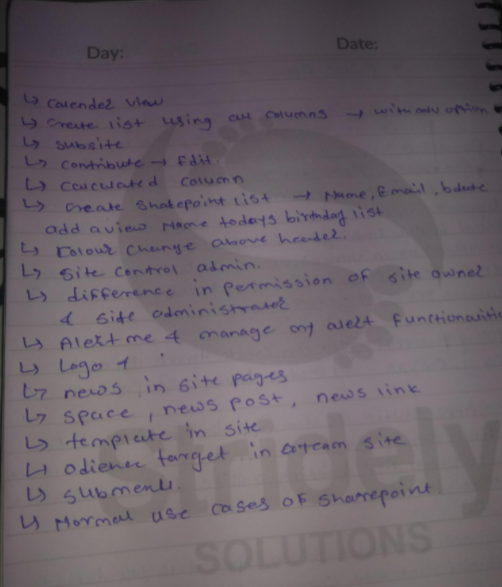 Day:
Date:
↳ Calender view
↳ Create list using all columns → with adv option
↳ subsite
↳ contribute → Edit.
↳ calculated column
↳ create Sharepoint list → Name, Email, bdate
add a view Name todays birthday list
↳ Colour change above header.
↳ Site control admin.
↳ difference in permission of site owner
& site administrator
↳ Alert me & manage my alert functionalities
↳ Logo &
↳ news in site pages
↳ space, news post, news link
↳ template in site
↳ odience target in team site
↳ submenu
↳ Normal use cases of sharepoint
Stridely
SOLUTIONS